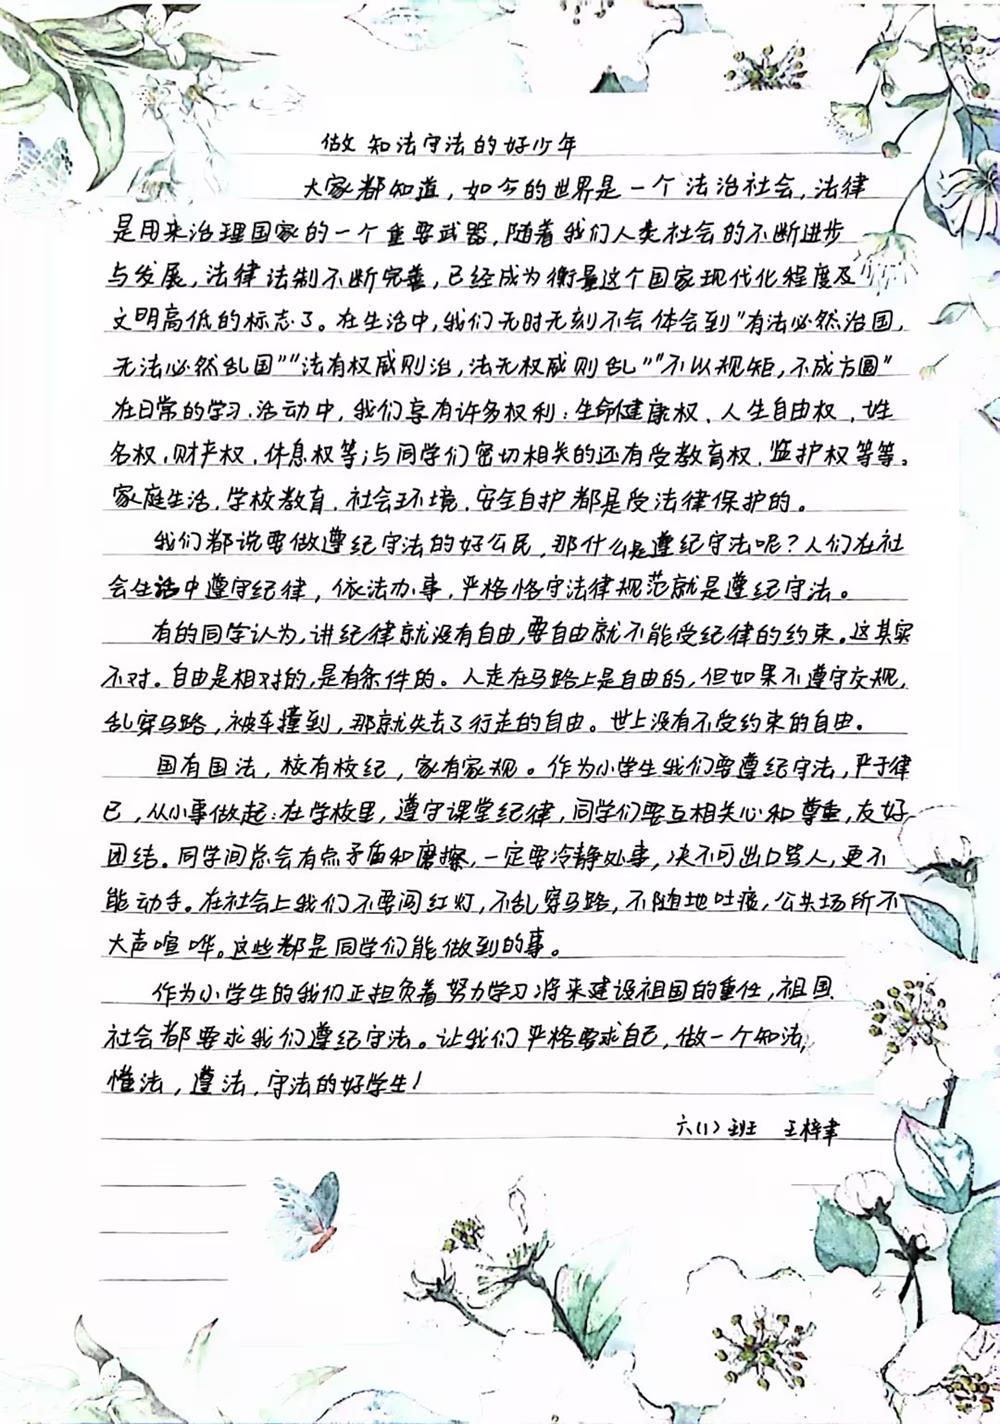 做知法守法的好少年
大家都知道，如今的世界是一个法治社会，法律
是用来治理国家的一个重要武器，随着我们人类社会的不断进步
与发展，法律法制不断完善，已经成为衡量这个国家现代化程度及
文明高低的标志了。在生活中，我们无时无刻不会体会到"有法必然治国，
无法必然乱国""法有权威则治，法无权威则乱""不以规矩，不成方圆"
在日常的学习、活动中，我们享有许多权利：生命健康权、人生自由权、姓
名权，财产权，休息权等；与同学们密切相关的还有受教育权、监护权等等。
家庭生活，学校教育、社会环境、安全自护都是受法律保护的。
我们都说要做遵纪守法的好公民，那什么是遵纪守法呢？人们在社
会生活中遵守纪律，依法办事，严格恪守法律规范就是遵纪守法。
有的同学认为，讲纪律就没有自由，要自由就不能受纪律的约束。这其实
不对。自由是相对的，是有条件的。人走在马路上是自由的，但如果不遵守交规，
乱穿马路，被车撞到，那就失去了行走的自由。世上没有不受约束的自由。
国有国法，校有校纪，家有家规。作为小学生我们要遵纪守法，严于律
已，从小事做起：在学校里，遵守课堂纪律，同学们要互相关心和尊重，友好
团结。同学间总会有点矛盾和磨擦，一定要冷静处事，决不可出口骂人，更不
能动手。在社会上我们不要闯红灯，不乱穿马路，不随地吐痰，公共场所不
大声喧哗。这些都是同学们能做到的事。
作为小学生的我们正担负着努力学习将来建设祖国的重任，祖国、
社会都要求我们遵纪守法。让我们严格要求自己，做一个知法，
惟法，遵法，守法的好学生！
六（1）班 王梓聿